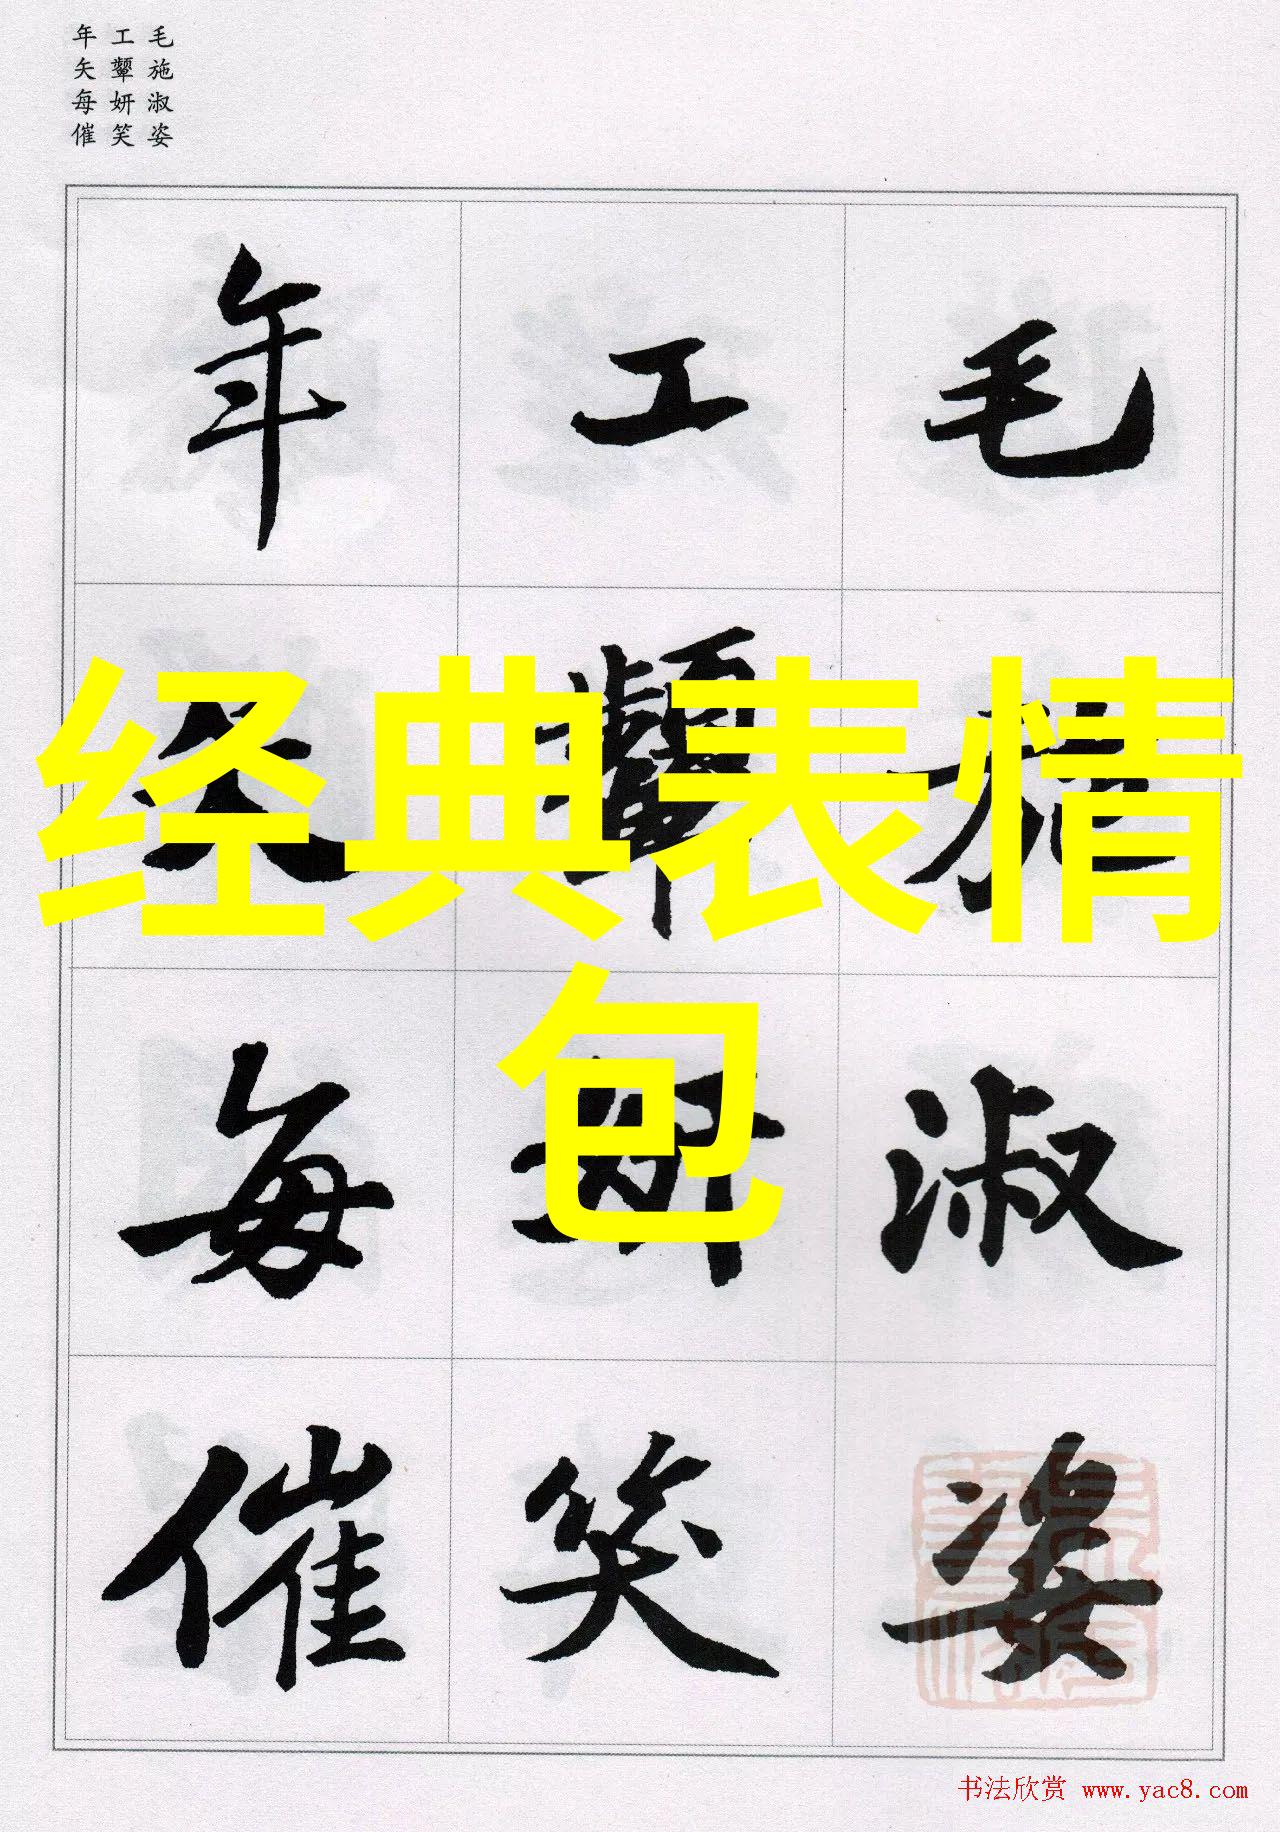 毛施淑姿
工顰妍笑
年矢每催
毛施淑姿
工顰妍笑
年矢每催
经典表情
包
书法欣赏 www.yac8.com